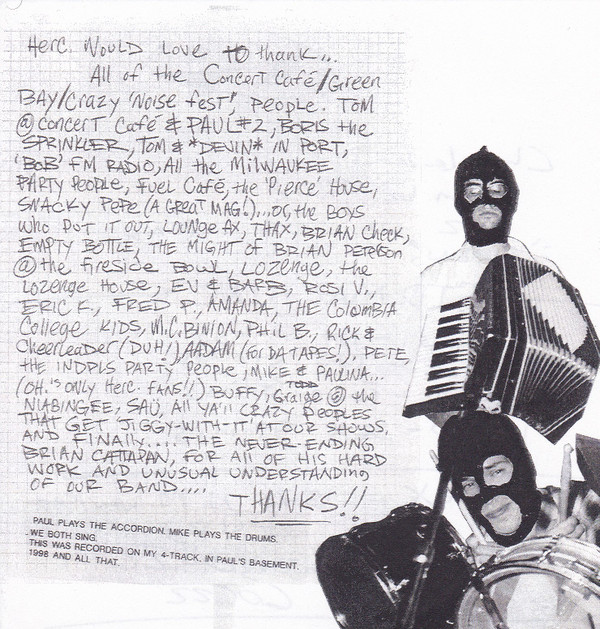 Herc. Would Love to thank...
All of the Concert Café/Green
Bay/Crazy 'Noise fest', people. Tom
@ Concert Café & Paul #2, Boris the
Sprinkler, Tom & *Devin* in Port,
'BOB' FM Radio, All the Milwaukee
Party People, Fuel Café, the 'Pierce' House,
Snacky Pepe (A great mag!)... or, the boys
who put it out, Lounge Ax, Thax, Brian Check,
Empty Bottle, the might of Brian Peterson
@ the Fireside Bowl, Lozenge, the
Lozenge House, Ev & Barb, Rosi V.,
Eric K., Fred P., Amanda, the Colombia
College Kids, M.C. Binion, Phil B., Rick &
Cheerleader (DUH!) AADAM (for DA TAPES!), Pete,
the INDPLS Party People, Mike & Paulina...
(OH. 's only Herc. fans!!) Buffy, Todd Graige @ the
Niabingee, Sau, All ya'll crazy peoples
that get jiggy-with-it at our shows,
and finally.... the never-ending
Brian Cattapan, for all of his hard
work and unusual understanding
of our band....
THANKS!!
PAUL PLAYS THE ACCORDION. MIKE PLAYS THE DRUMS.
WE BOTH SING.
THIS WAS RECORDED ON MY 4-TRACK, IN PAUL'S BASEMENT.
1998 AND ALL THAT.